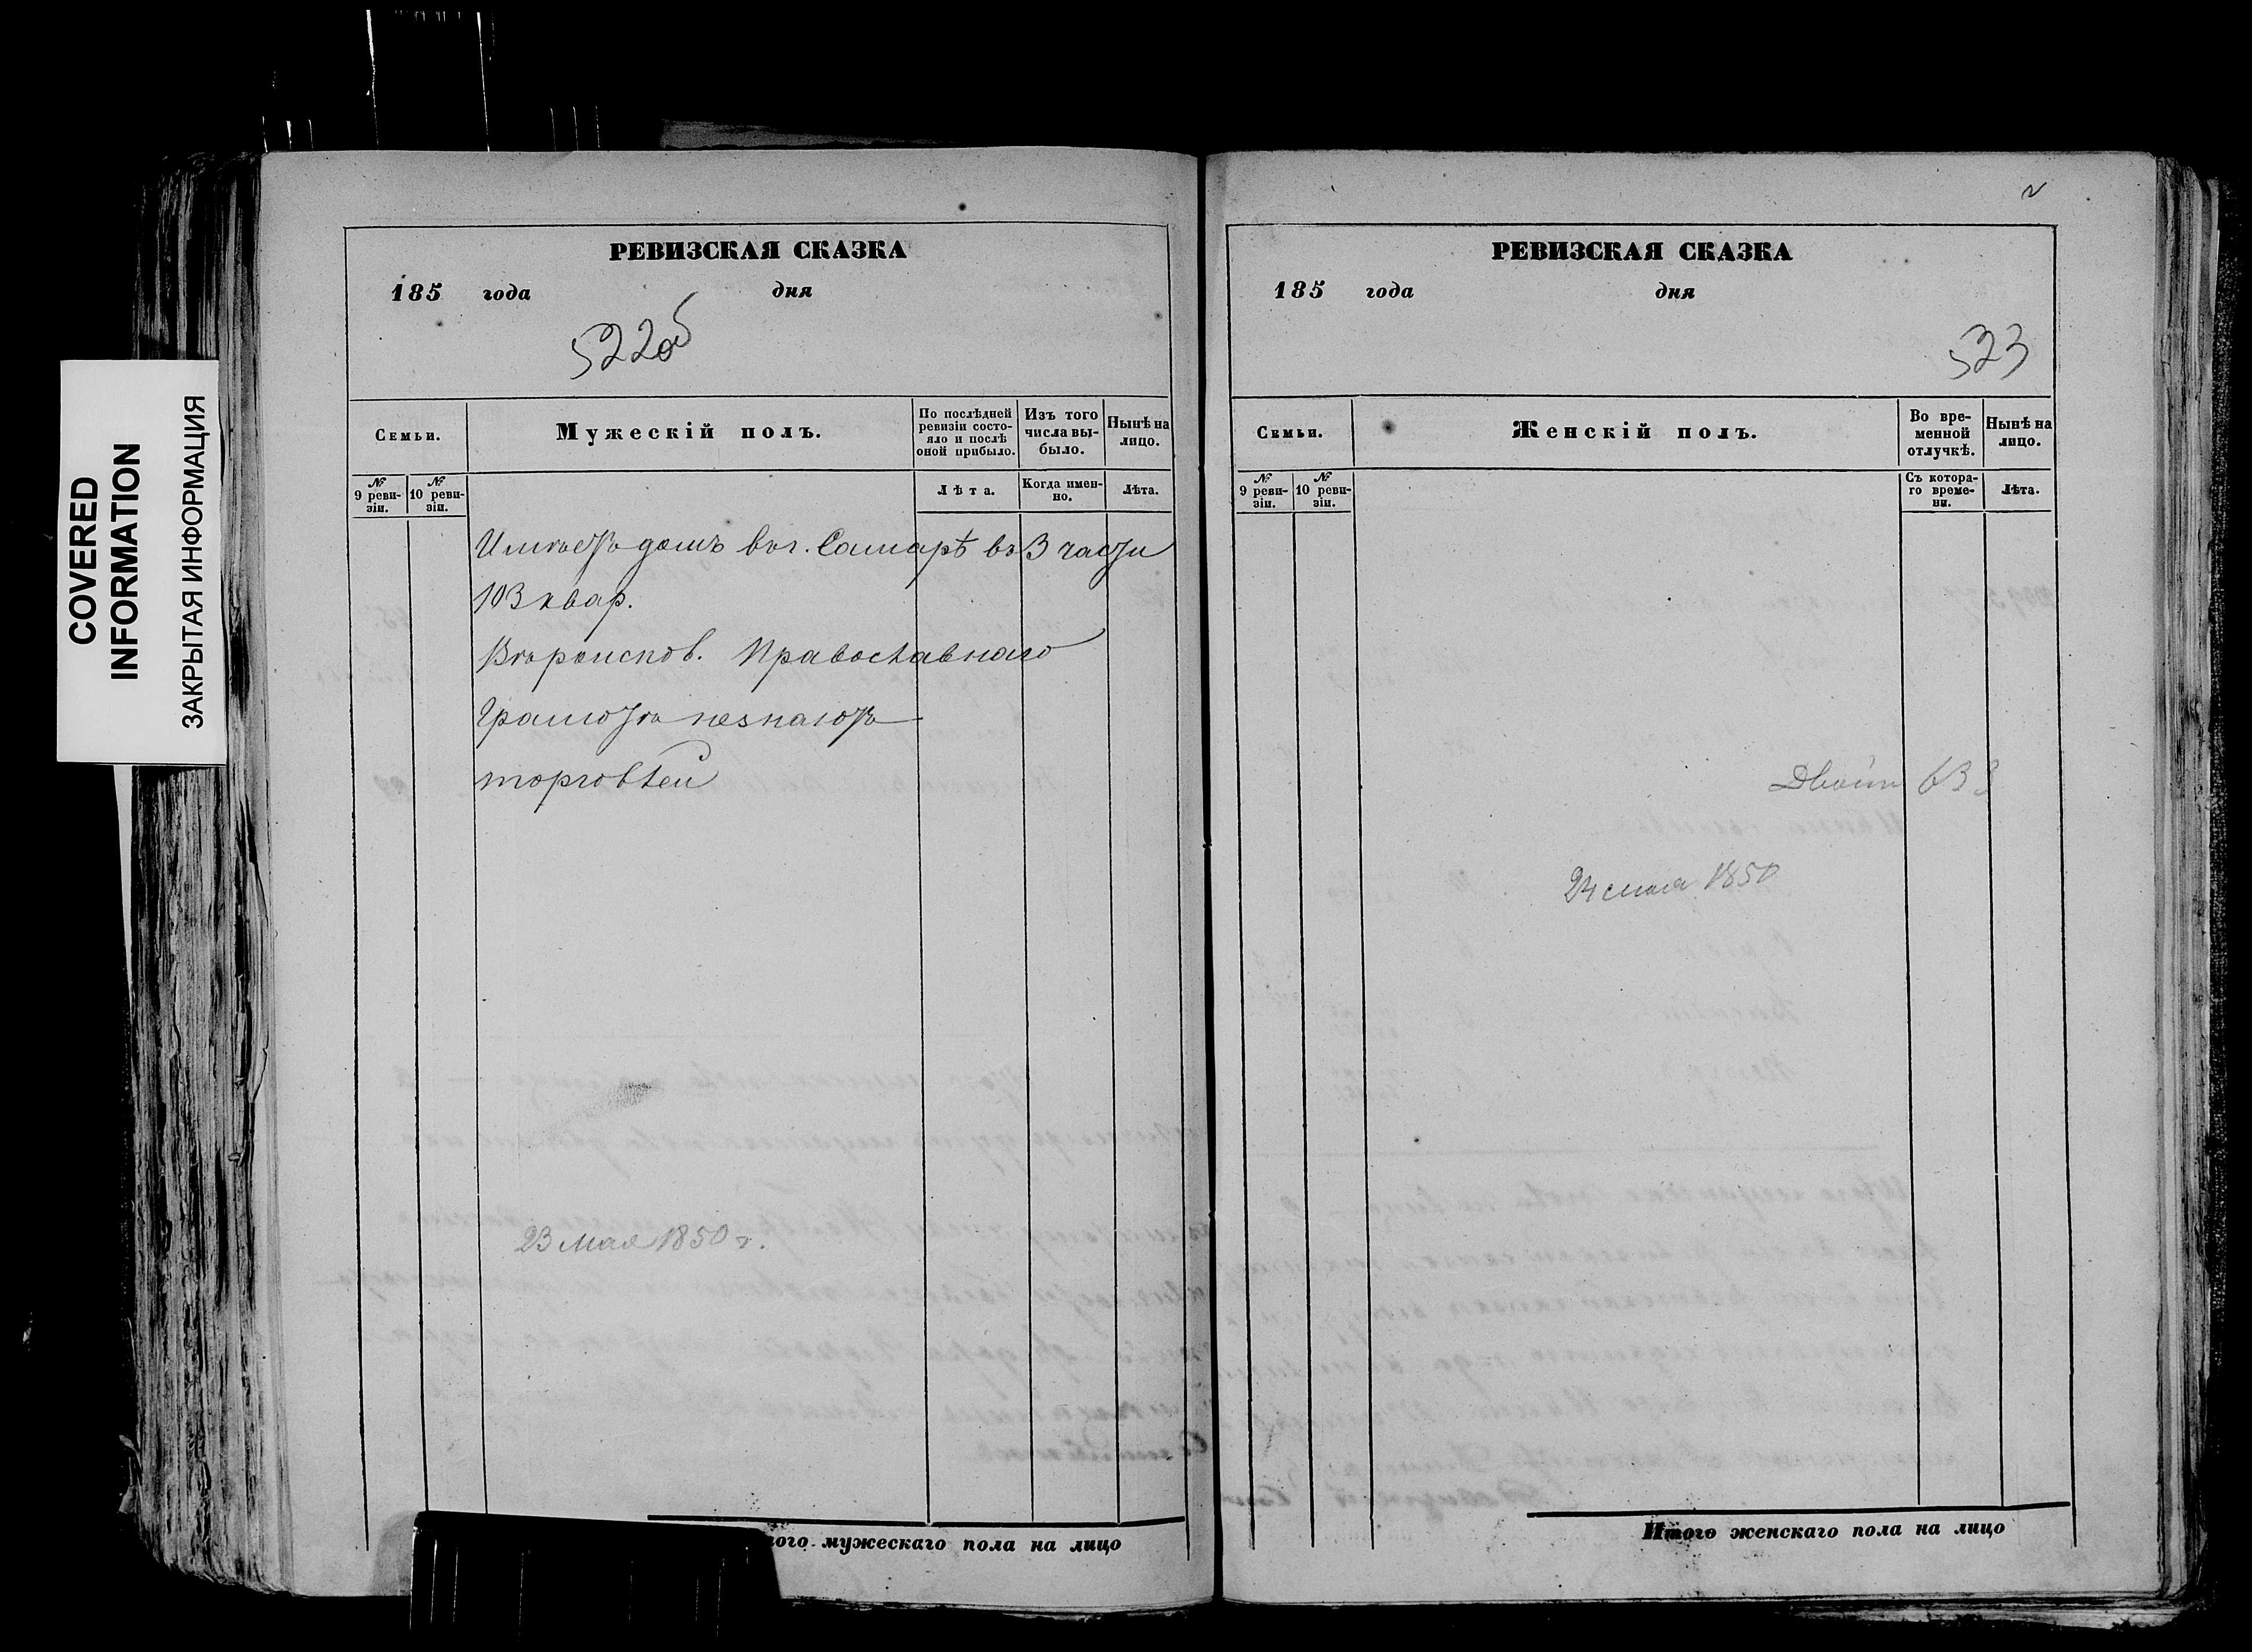 COVERED
INFORMATION
ЗАКРЫТАЯ ИНФОРМАЦИЯ
РЕВИЗСКАЯ СКАЗКА
185 года дня
522об
Семьи.
Мужескій полъ.
По послѣдней ревизіи состояло и послѣ оной прибыло.
Изъ того числа выбыло.
Нынѣ на лицо.
№ 9 ревизіи.
№ 10 ревизіи.
Лѣта.
Когда именно.
Лѣта.
Имѣетъ домъ въ г. Самарѣ въ 3 части
103 квар.
Вѣроиспов. Православнаго
Грамотѣ незнаютъ
торговлей
23 мая 1850 г.
ого мужескаго пола на лицо
РЕВИЗСКАЯ СКАЗКА
185 года дня
523
Семьи.
Женскій полъ.
Во временной отлучкѣ.
Нынѣ на лицо.
№ 9 ревизіи.
№ 10 ревизіи.
Съ котораго времени.
Лѣта.
24 1850
Итого женскаго пола на лицо